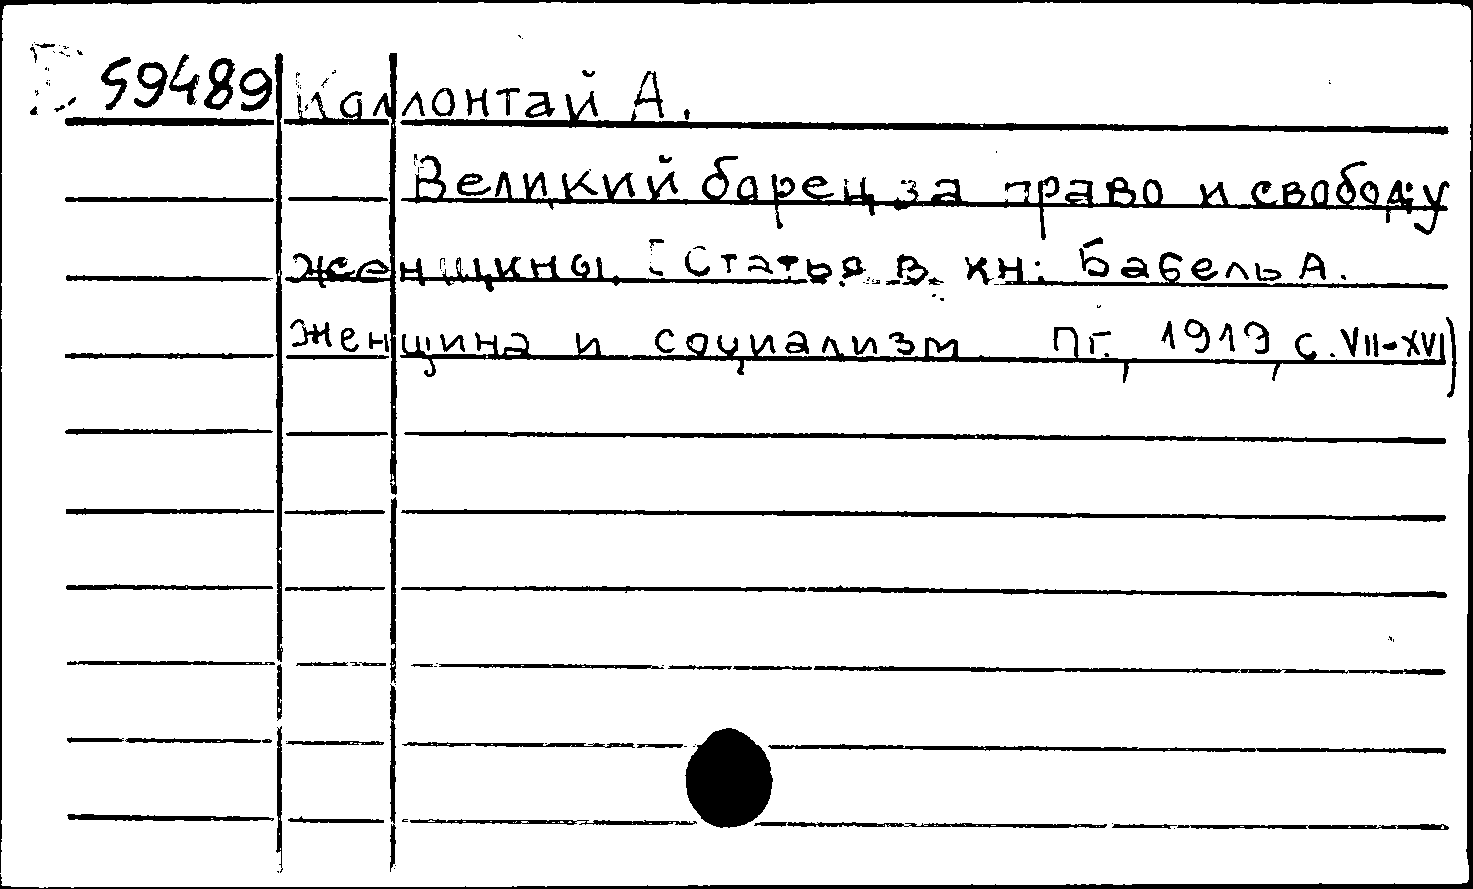 59489 Коллонтай А.
Великий борец за право и свободу
женщины. [Статья в кн: Бабель А.
Женщина и социализм Пг., 1919, с. VII-XVI)